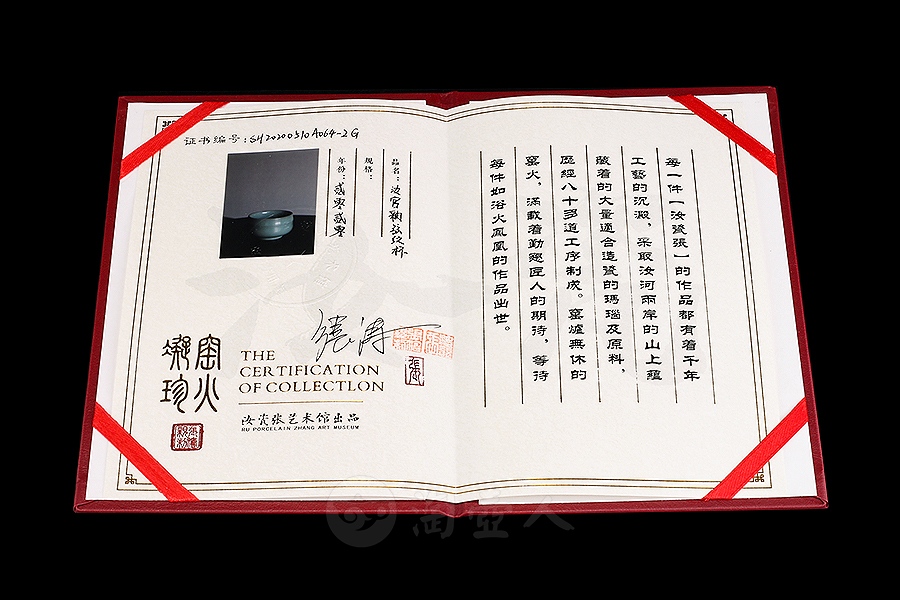 证书编号:SH20200310A064-2G
品名:汝窑鞠弦纹杯
规格:
年份:贰零贰零
窑火
凝珍
THE
CERTIFICATION
OF COLLECTLON
汝瓷张艺术馆出品
RU PORCELAIN ZHANG ART MUSEUM
每一件【汝瓷張】的作品都有着千年
工藝的沉澱，采取汝河兩岸的山上蘊
藏着的大量適合造瓷的瑪瑙及原料，
歷經八十多道工序制成。窑爐無休的
窑火，滿載着勤懇匠人的期待，等待
每件如浴火鳳凰的作品出世。
淘壺人